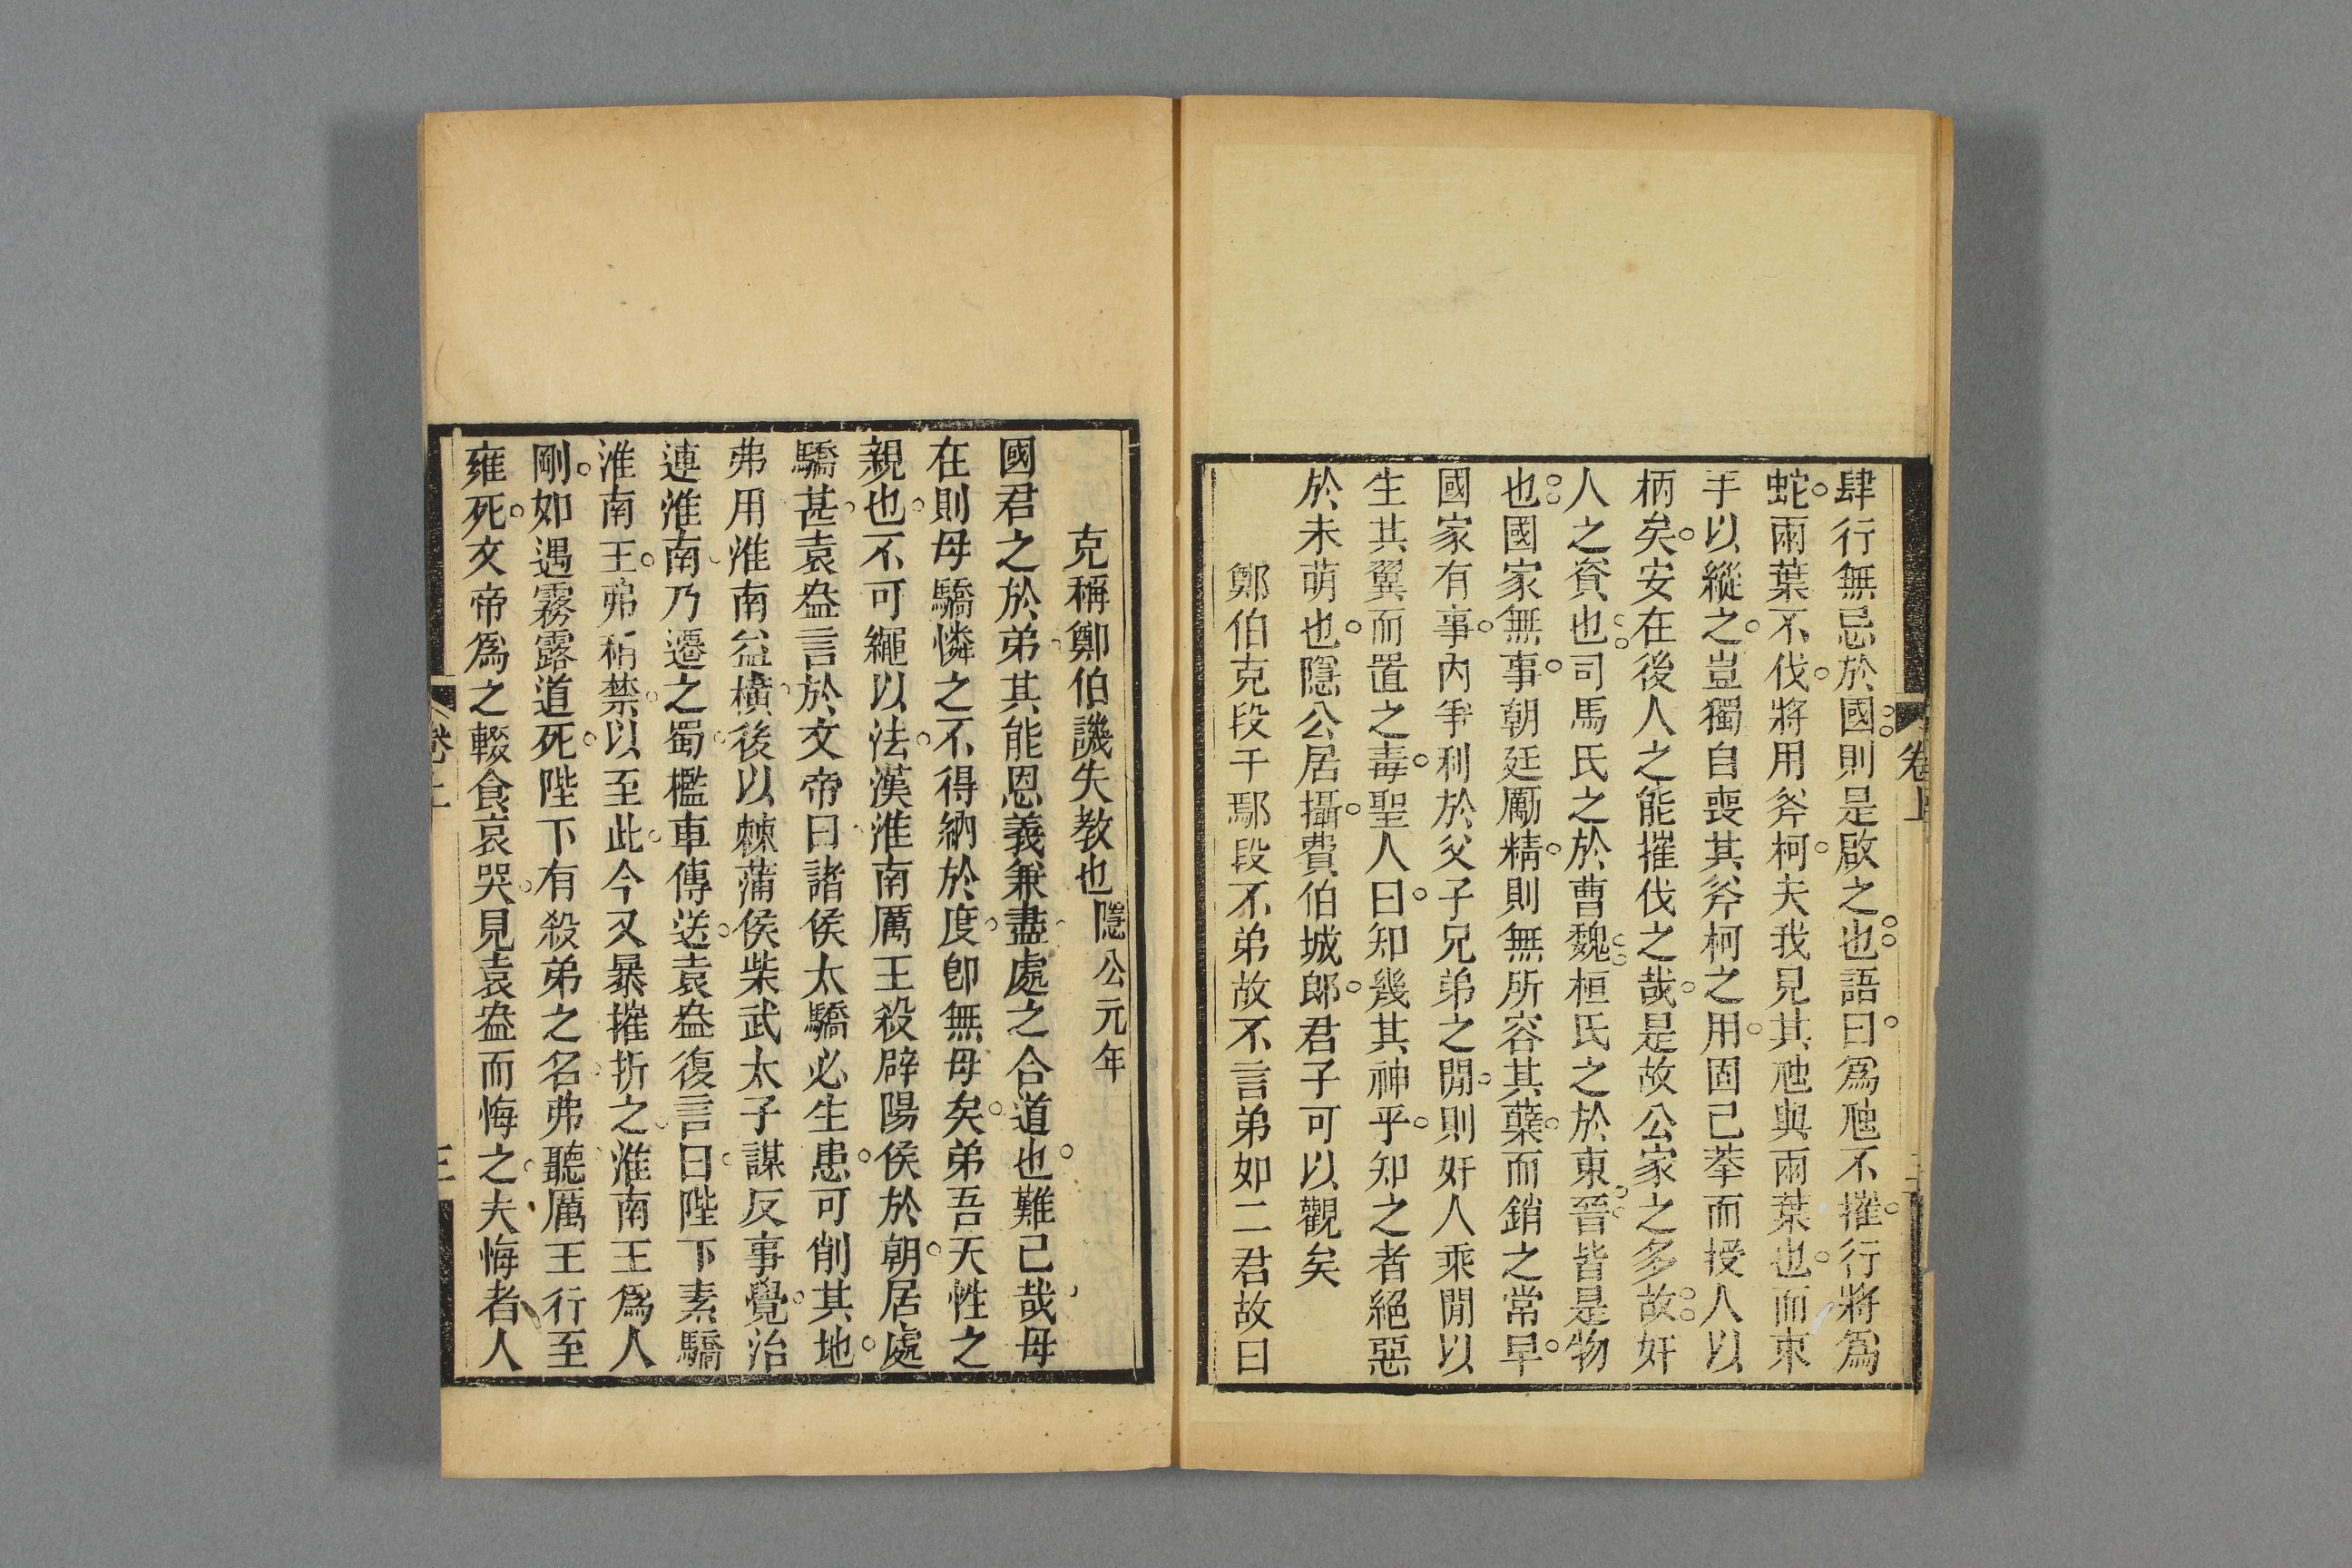 肆行無忌於國則是啟之也語曰爲虺不摧行將爲
蛇兩葉不伐將用斧柯夫我見其虺與兩葉也而束
手以縱之豈獨自喪其斧柯之用固已莑而授人以
柄矣安在後人之能摧伐之哉是故公家之多故奸
人之資也司馬氏之於曹魏桓氏之於東晉皆是物
也國家無事朝廷勵精則無所容其蘖而銷之常早
國家有事內爭利於父子兄弟之閒則奸人乘閒以
生其翼而置之毒聖人曰知幾其神乎知之者絕惡
於未萌也隱公居攝費伯城郎君子可以觀矣
鄭伯克段于鄢段不弟故不言弟如二君故曰
卷上
二
克稱鄭伯譏失教也隱公元年
國君之於弟其能恩義兼盡處之合道也難已哉母
在則母驕憐之不得納於度卽無母矣弟吾天性之
親也不可繩以法漢淮南厲王殺辟陽侯於朝居處
驕甚袁盎言於文帝曰諸侯太驕必生患可削其地
弗用淮南益橫後以棘蒲侯柴武太子謀反事覺治
連淮南乃遷之蜀檻車傳送袁盎復言曰陛下素驕
淮南王弗稍禁以至此今又暴摧折之淮南王爲人
剛如遇霧露道死陛下有殺弟之名弗聽厲王行至
雍死文帝爲之輟食哀哭見袁盎而悔之夫悔者人
卷上
三